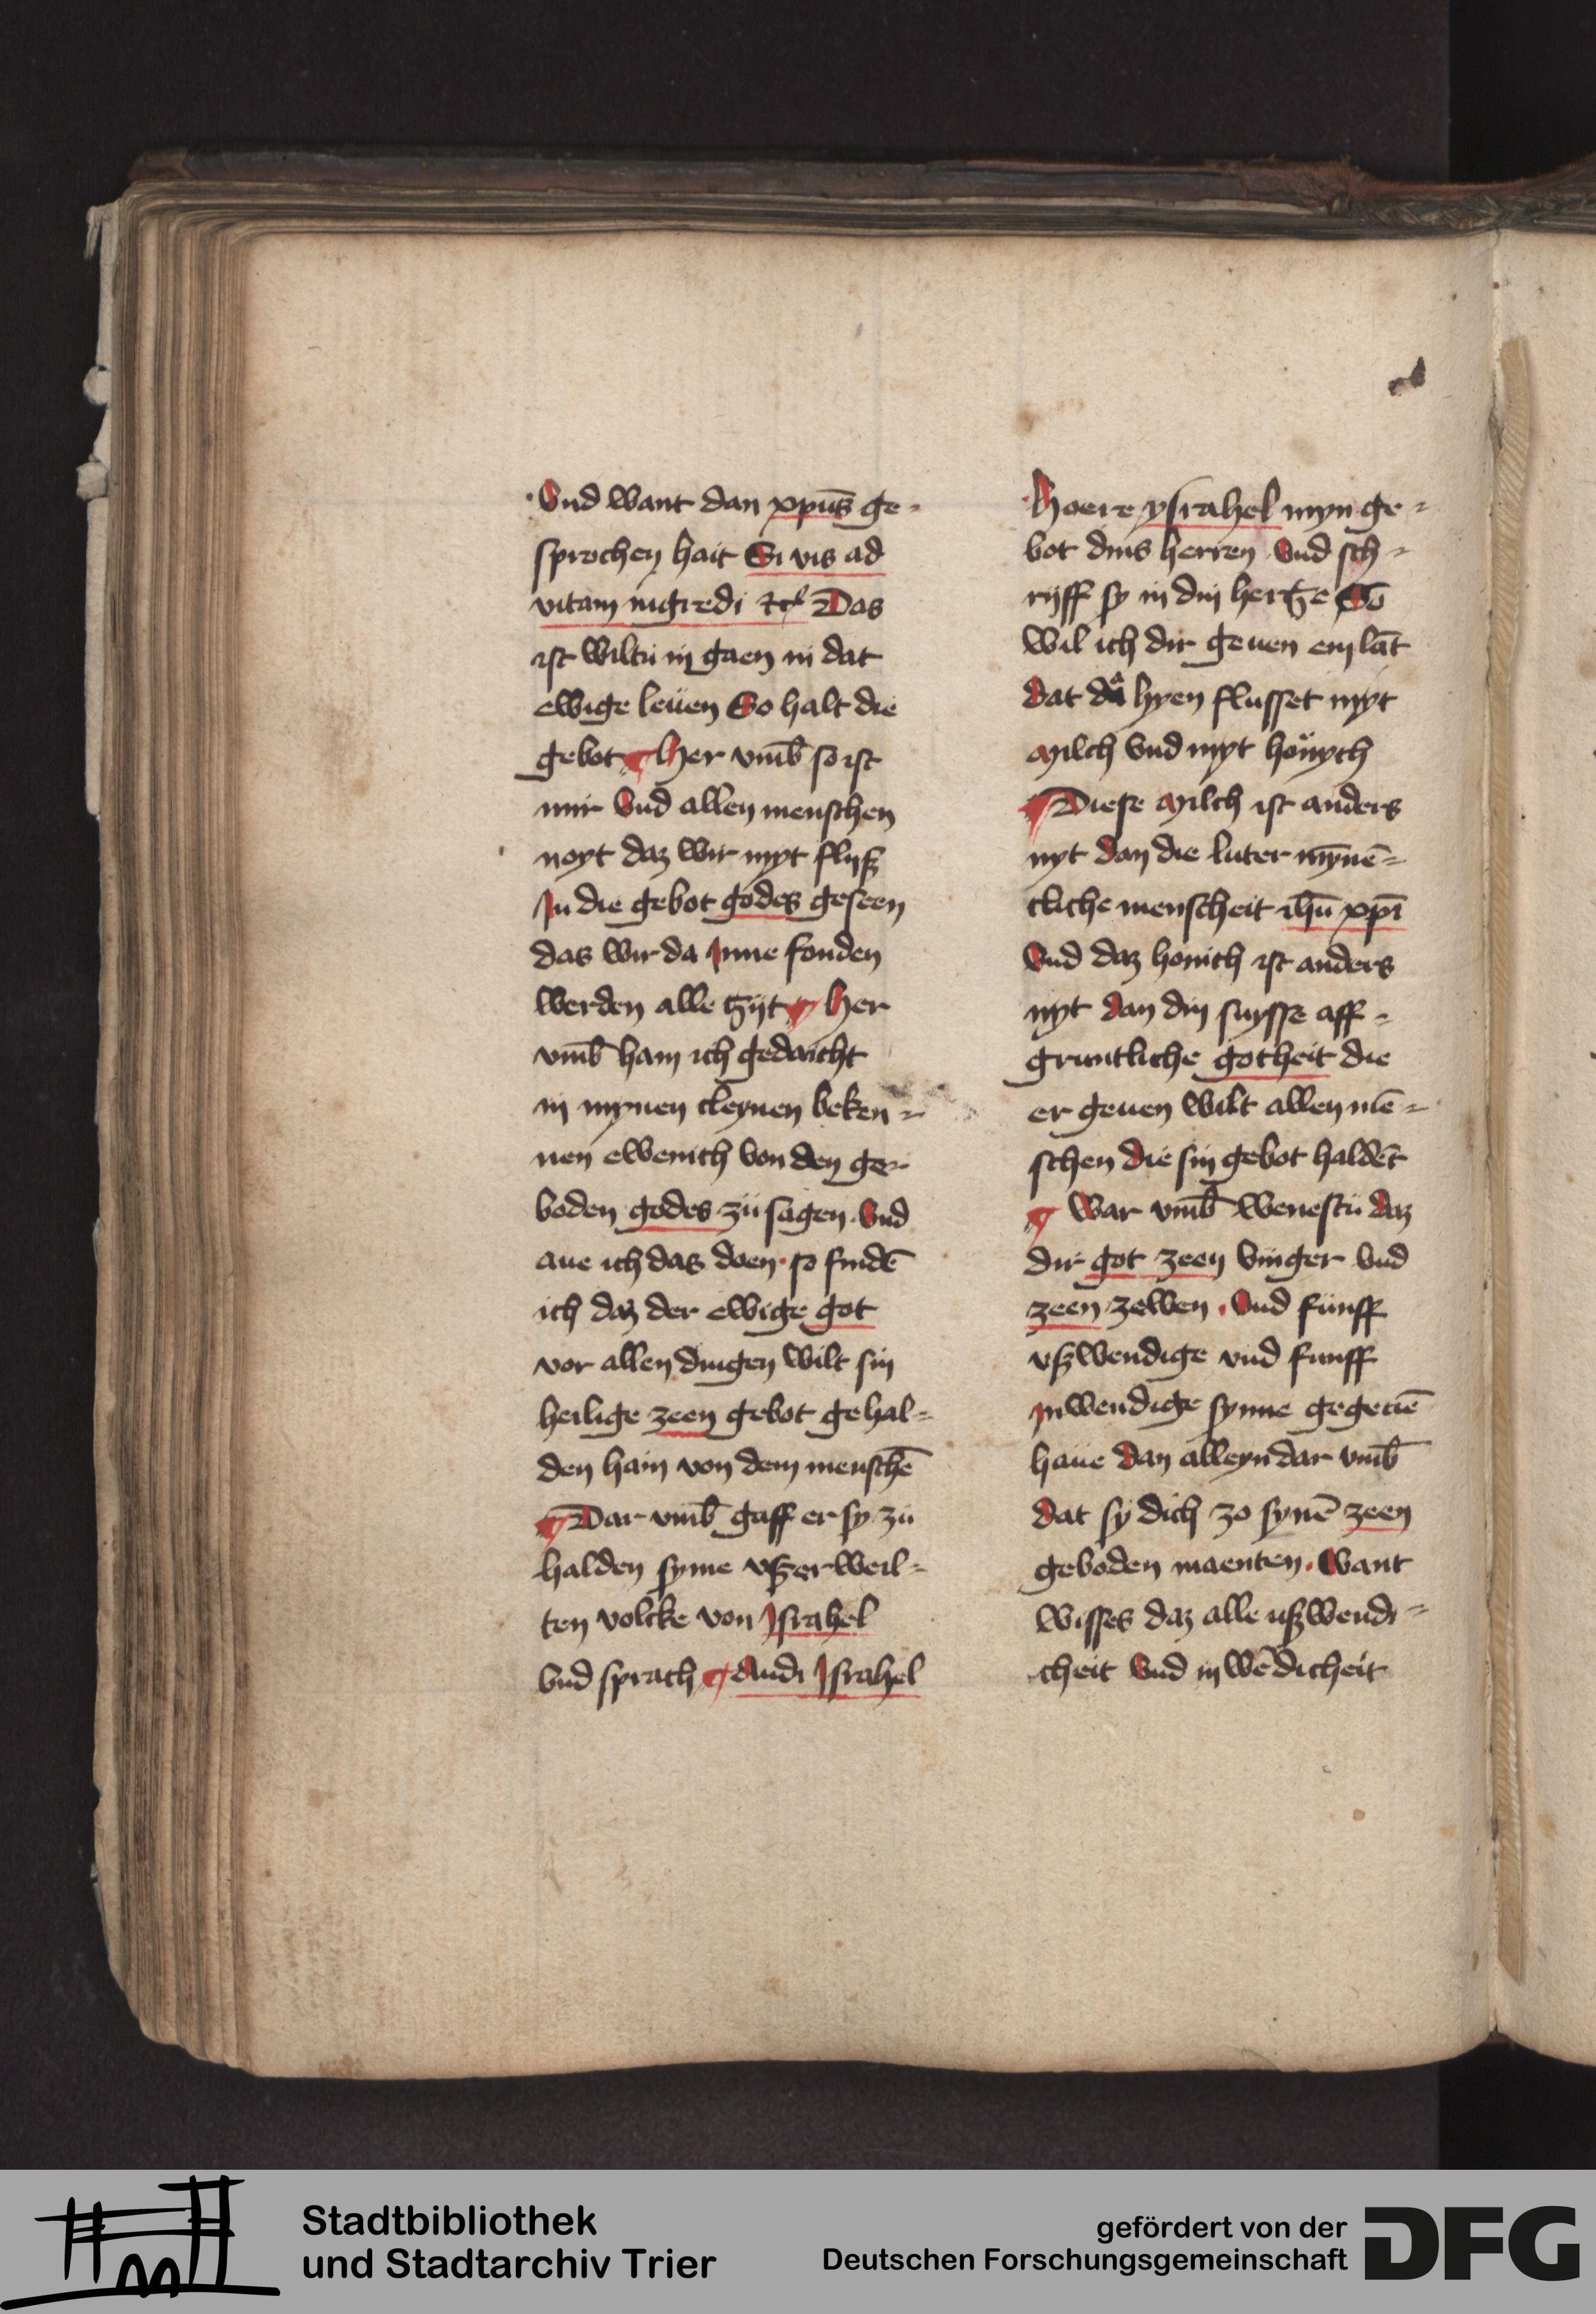 Vnd want dan xpūs ge-
sprochen hait Si vis ad
vitam ingredi etc̄ Das
ist wiltu in gaen in dat
ewige leuen So halt die
gebot ¶ Her vmb̄ so ist
mir vnd allen menschen
noyt daz wir myt flijß
In die gebot godes geseen
das wir da Inne fonden
werden alle tzijt ¶ Her
vmb̄ ham ich gedaicht
in mynen cleynen beken-
nen ewenich von den ge-
boden godes zü sagen . Vnd
aue ich das doen . so findē
ich daz der ewige got
vor allen dingen wilt sin
heilige zeen gebot gehal-
den hain von dem menschē
¶ Dar vmb̄ gaff er sy zü
halden syme vßerweil-
ten volcke von Israhel
vnd sprach ¶ Audi Israhel
Hoere ysrahel myn ge-
bot dins herren Vnd sch-
rijff sy in din hertze Sō
wil ich dir geuen ein lāt
dat da hyen flusset myt
milch vnd myt honych
¶ Diese milch ist anders
nyt dan die luter mȳnē-
cliche menscheit ihū xpī
Vnd daz honich ist anders
nyt dan din suysse aff-
gruntliche gotheit die
er geuen wilt allen mē-
schen die sin gebot haldēt
¶ War vmb̄ wenestu daz
dir got zeen vinger vnd
zeen zewen . Vnd fünff
vßwendige vnd funff
Inwendige synne gegeuē
haue dan alleyn dar vmb̄
dat sy dich zo synē zeen
geboden maenten . Want
wisses daz alle ußwendi-
cheit vnd inwēdicheit
Stadtbibliothek
und Stadtarchiv Trier
gefördert von der
Deutschen Forschungsgemeinschaft
DFG